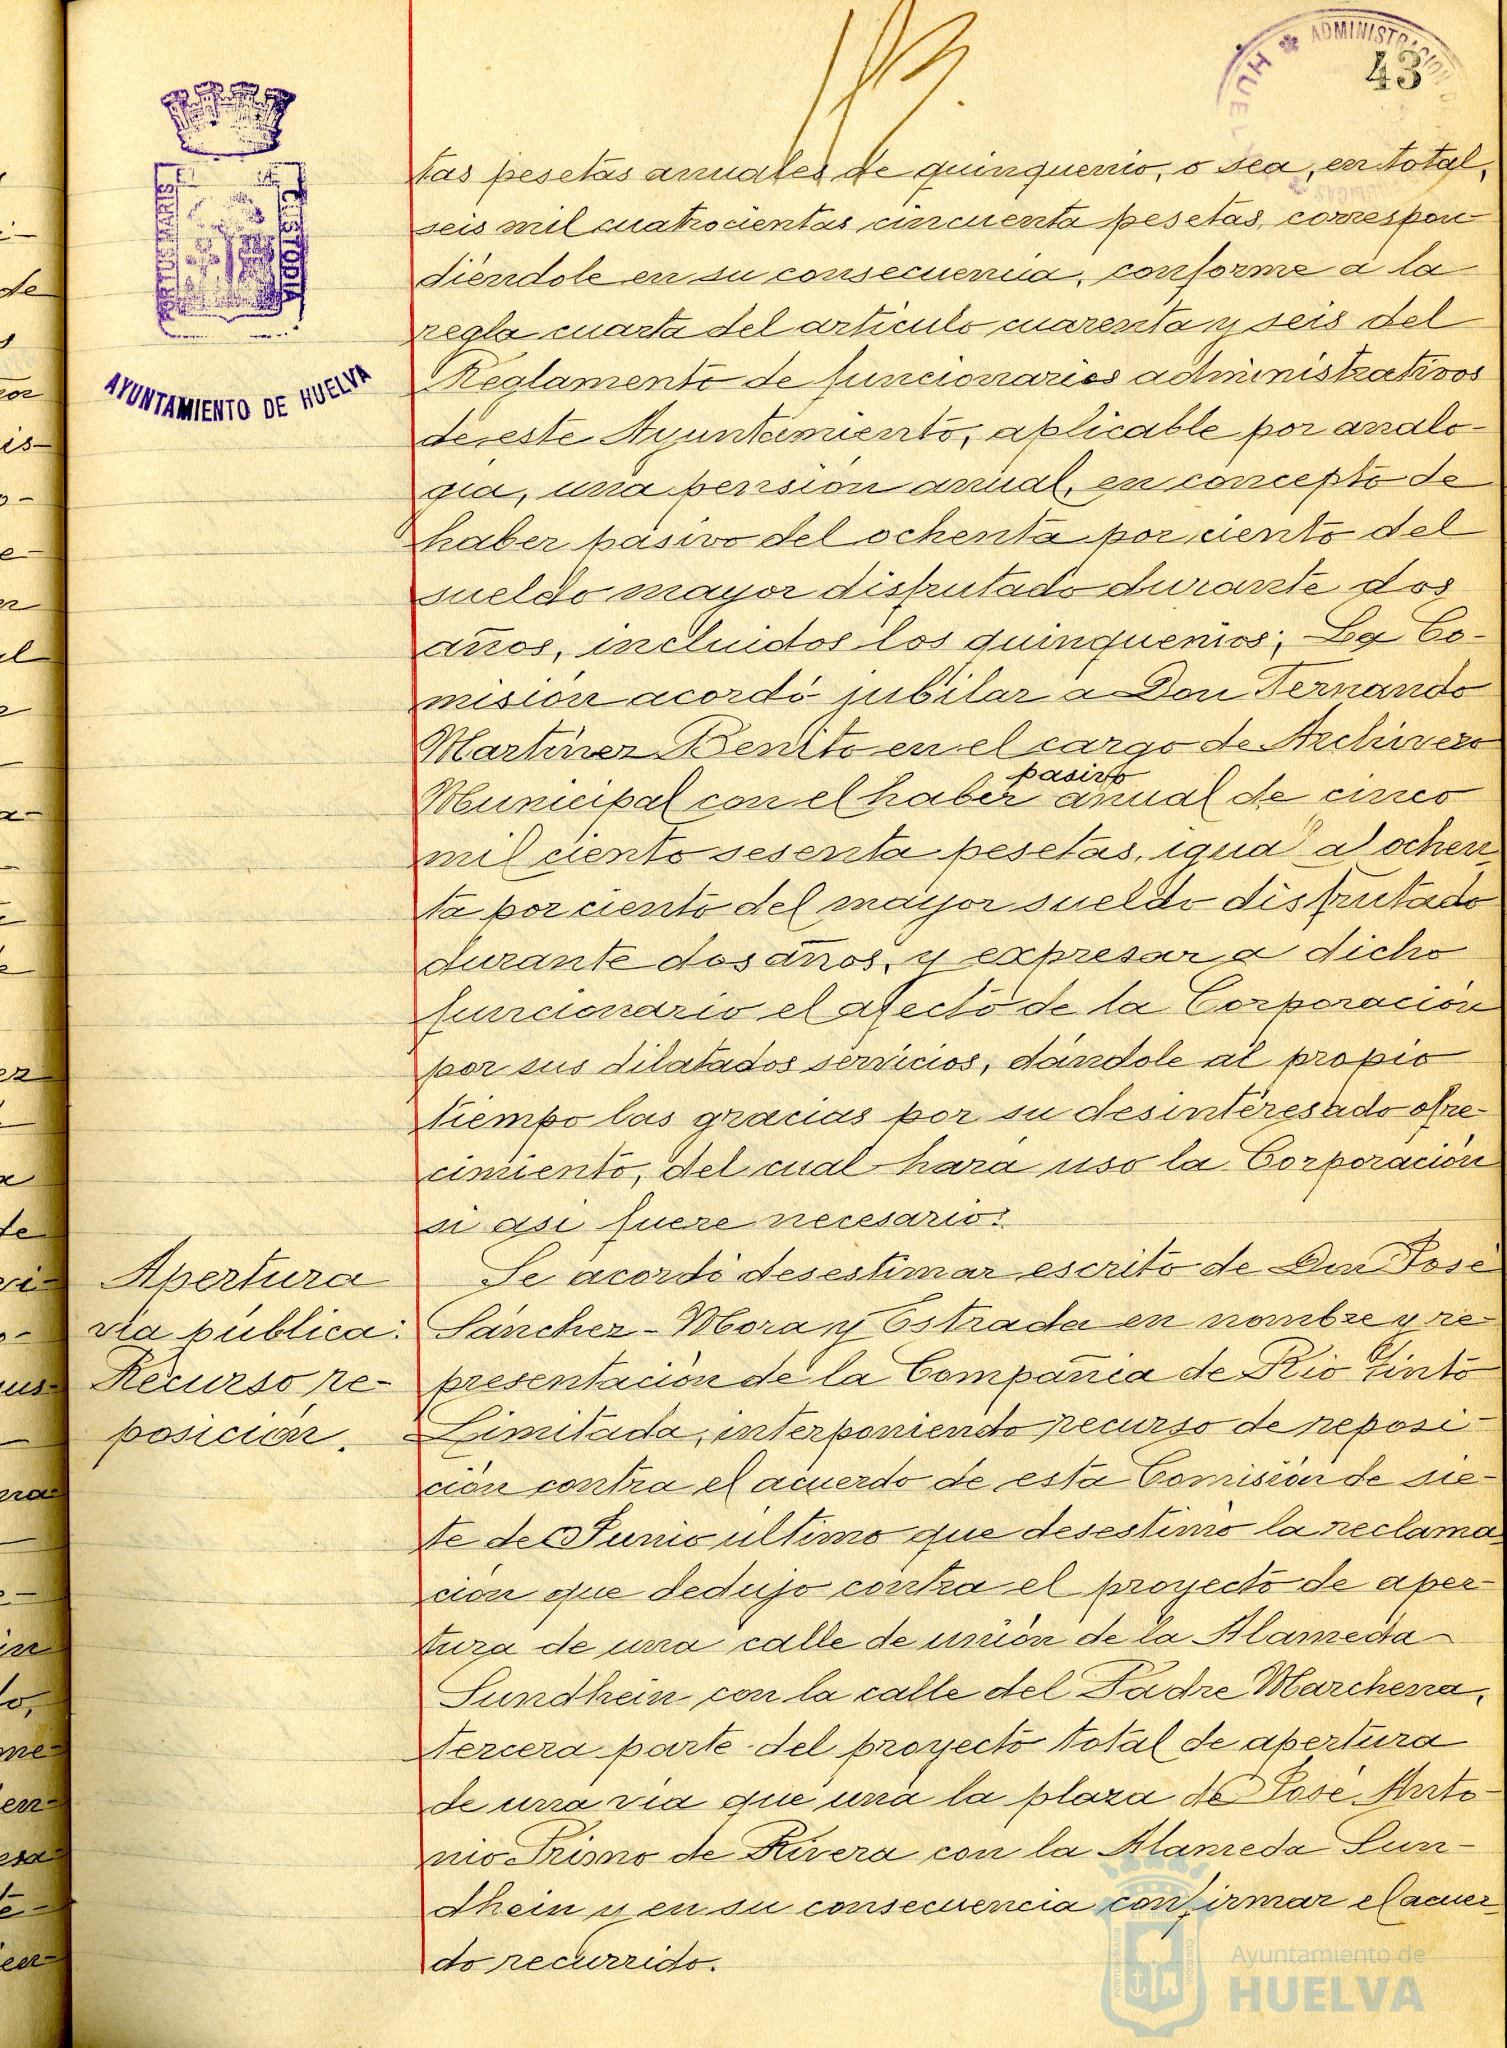 ADMINISTRACION
HUEL
43
PORTUS MARIS
CUSTODIA
AYUNTAMIENTO DE HUELVA
tas pesetas anuales de quinquenio, o sea, en total,
seis mil cuatrocientas cincuenta pesetas, correspon-
diéndole en su consecuencia, conforme a la
regla cuarta del artículo cuarenta y seis del
Reglamento de funcionarios administrativos
de este Ayuntamiento, aplicable por analo-
gía, una pensión anual, en concepto de
haber pasivo del ochenta por ciento del
sueldo mayor disfrutado durante dos
años, incluidos los quinquenios; La Co-
misión acordó jubilar a Don Fernando
Martínez Benito en el cargo de Archivero
Municipal con el haber pasivo anual de cinco
mil ciento sesenta pesetas, igual al ochen
ta por ciento del mayor sueldo disfrutado
durante dos años, y expresar a dicho
funcionario el afecto de la Corporación
por sus dilatados servicios, dándole al propio
tiempo las gracias por su desinteresado ofre-
cimiento, del cual hará uso la Corporación
si así fuere necesario.
Apertura
vía pública:
Recurso re-
posición.
Se acordó desestimar escrito de Don José
Sánchez-Mora y Estrada en nombre y re
presentación de la Compañía de Rio Tinto
Limitada, interponiendo recurso de reposi-
ción contra el acuerdo de esta Comisión de sie-
te de Junio último que desestimó la reclama
ción que dedujo contra el proyecto de aper-
tura de una calle de unión de la Alameda
Sundhein con la calle del Padre Marchena,
tercera parte del proyecto total de apertura
de una vía que una la plaza de José Anto-
nio Primo de Rivera con la Alameda Sun-
dhein y en su consecuencia confirmar el acuer
do recurrido.
Ayuntamiento de
HUELVA